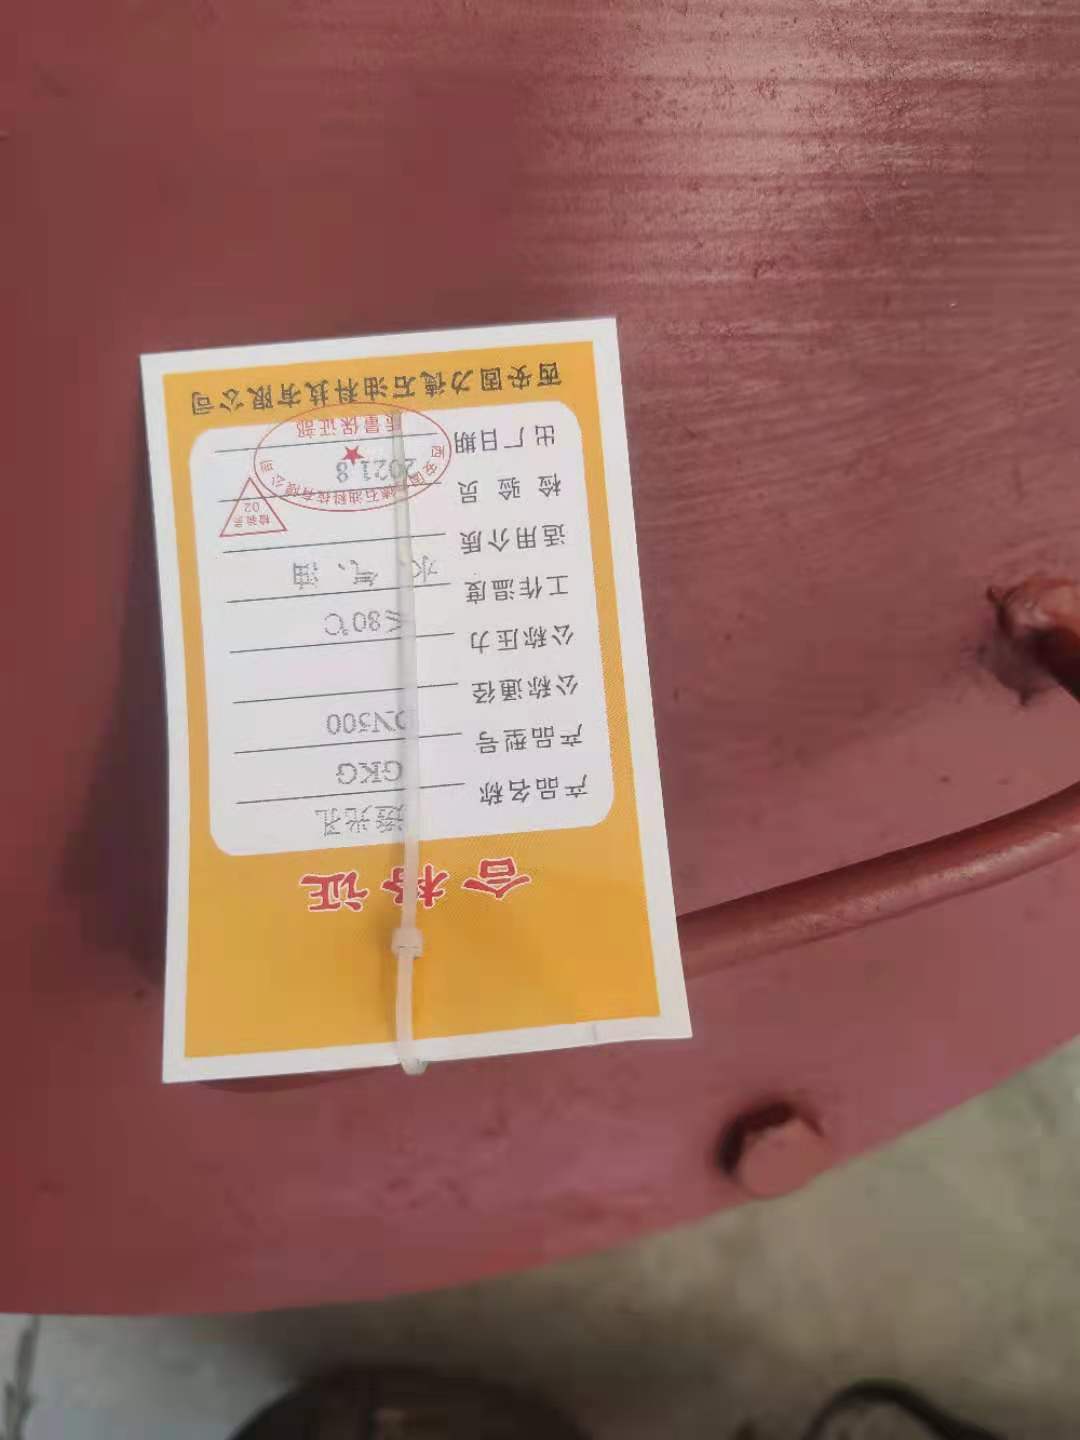 合格证
产品名称 透光孔
产品型号 GKG
公称通径 DN500
公称压力
工作温度 ≤80℃
适用介质 水、气、油
检验员 检验员 02
出厂日期 2021.8
西安固力德石油科技有限公司
质量保证部
西安固力德石油科技有限公司